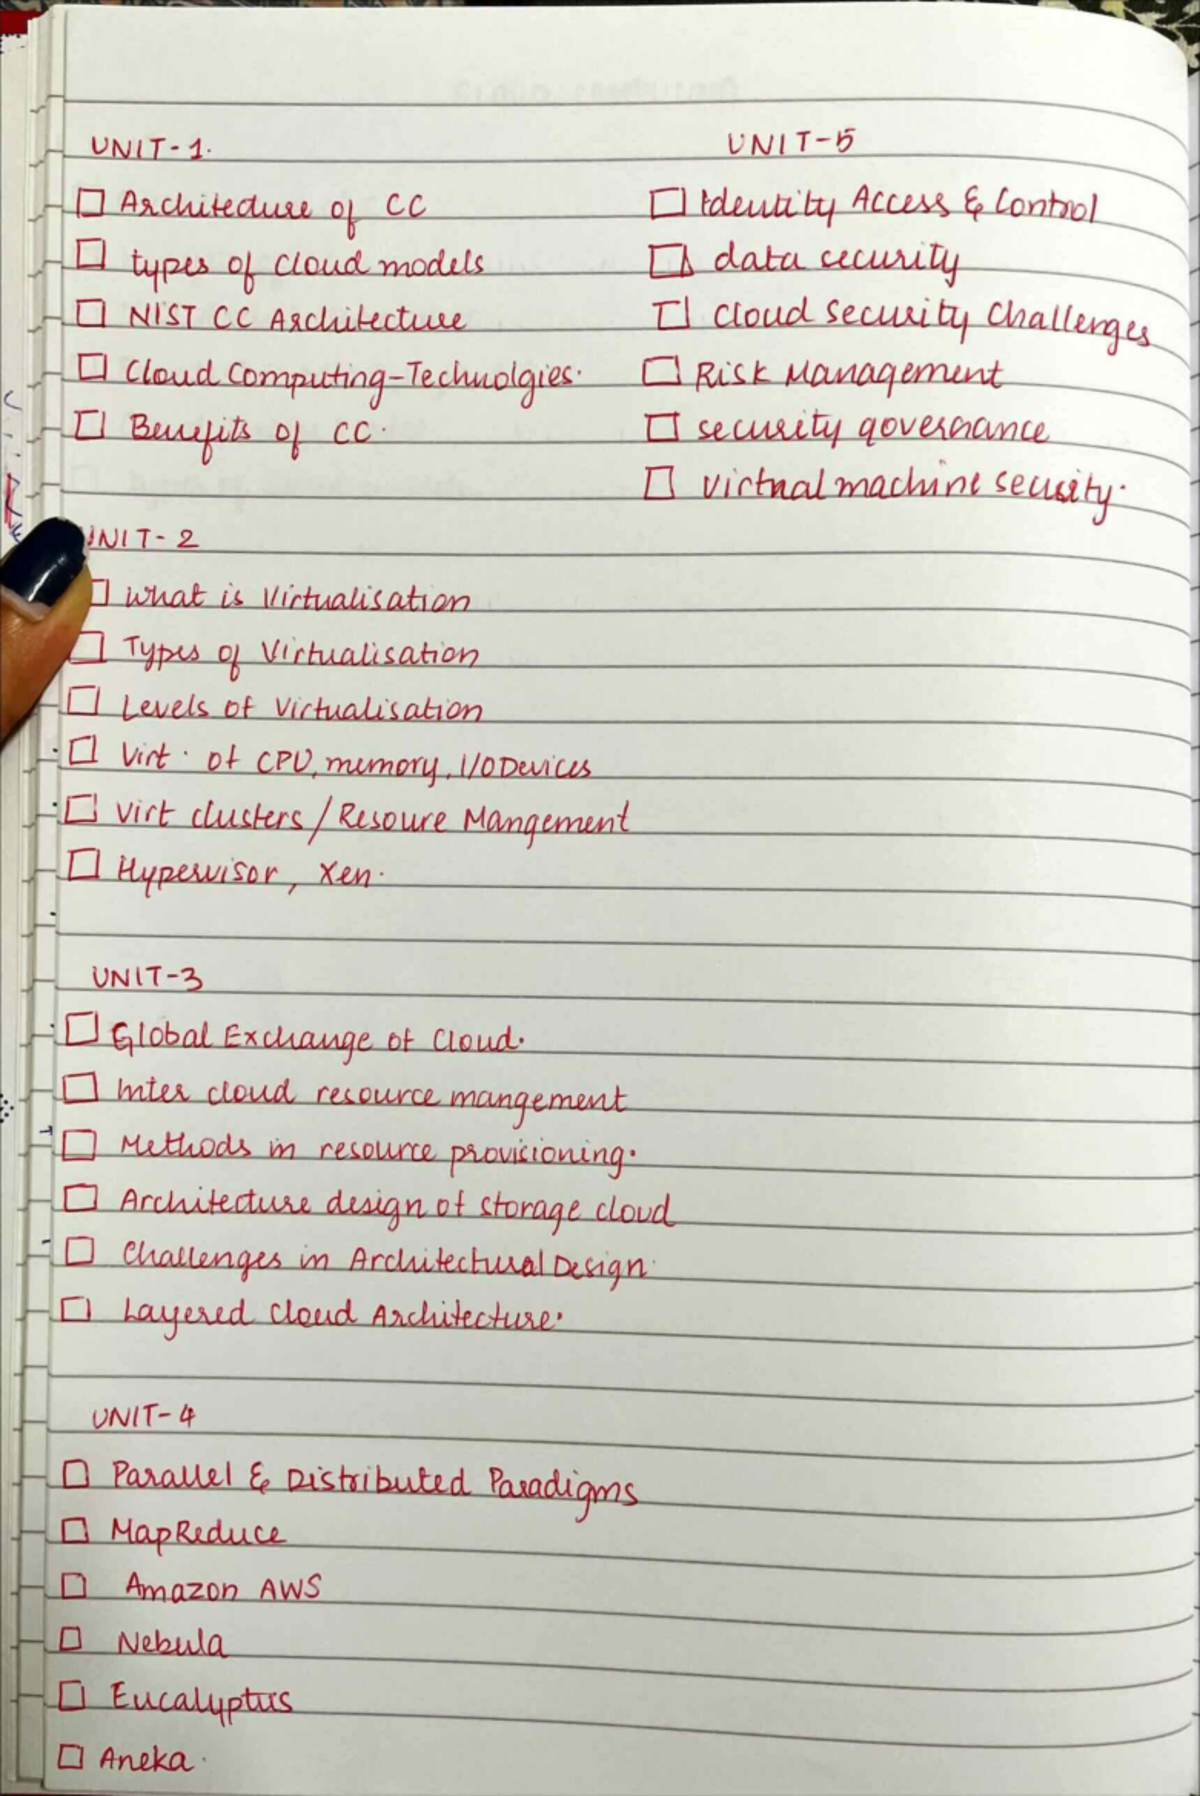 UNIT-1.
Architecture of CC
types of cloud models
NIST CC Architecture
Cloud Computing-Technolgies.
Benefits of CC.
UNIT-2
What is Virtualisation
Types of Virtualisation
Levels of Virtualisation
Virt. of CPU, memory, I/O Devices
Virt clusters / Resoure Mangement
Hypervisor, Xen.
UNIT-3
Global Exchange of Cloud.
Inter cloud resource mangement
Methods in resource provisioning.
Architecture design of storage cloud
Challenges in Architectural Design.
Layered Cloud Architecture.
UNIT-4
Parallel & Distributed Paradigms
MapReduce
Amazon AWS
Nebula
Eucalyptus
Aneka.
UNIT-5
Identity Access & Control
data security
Cloud Security Challenges
Risk Management
security governance
virtual machine security.